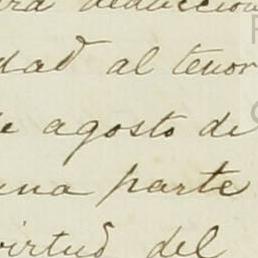 ra deduccion
dad al tenor
e agosto de
una parte
virtud del